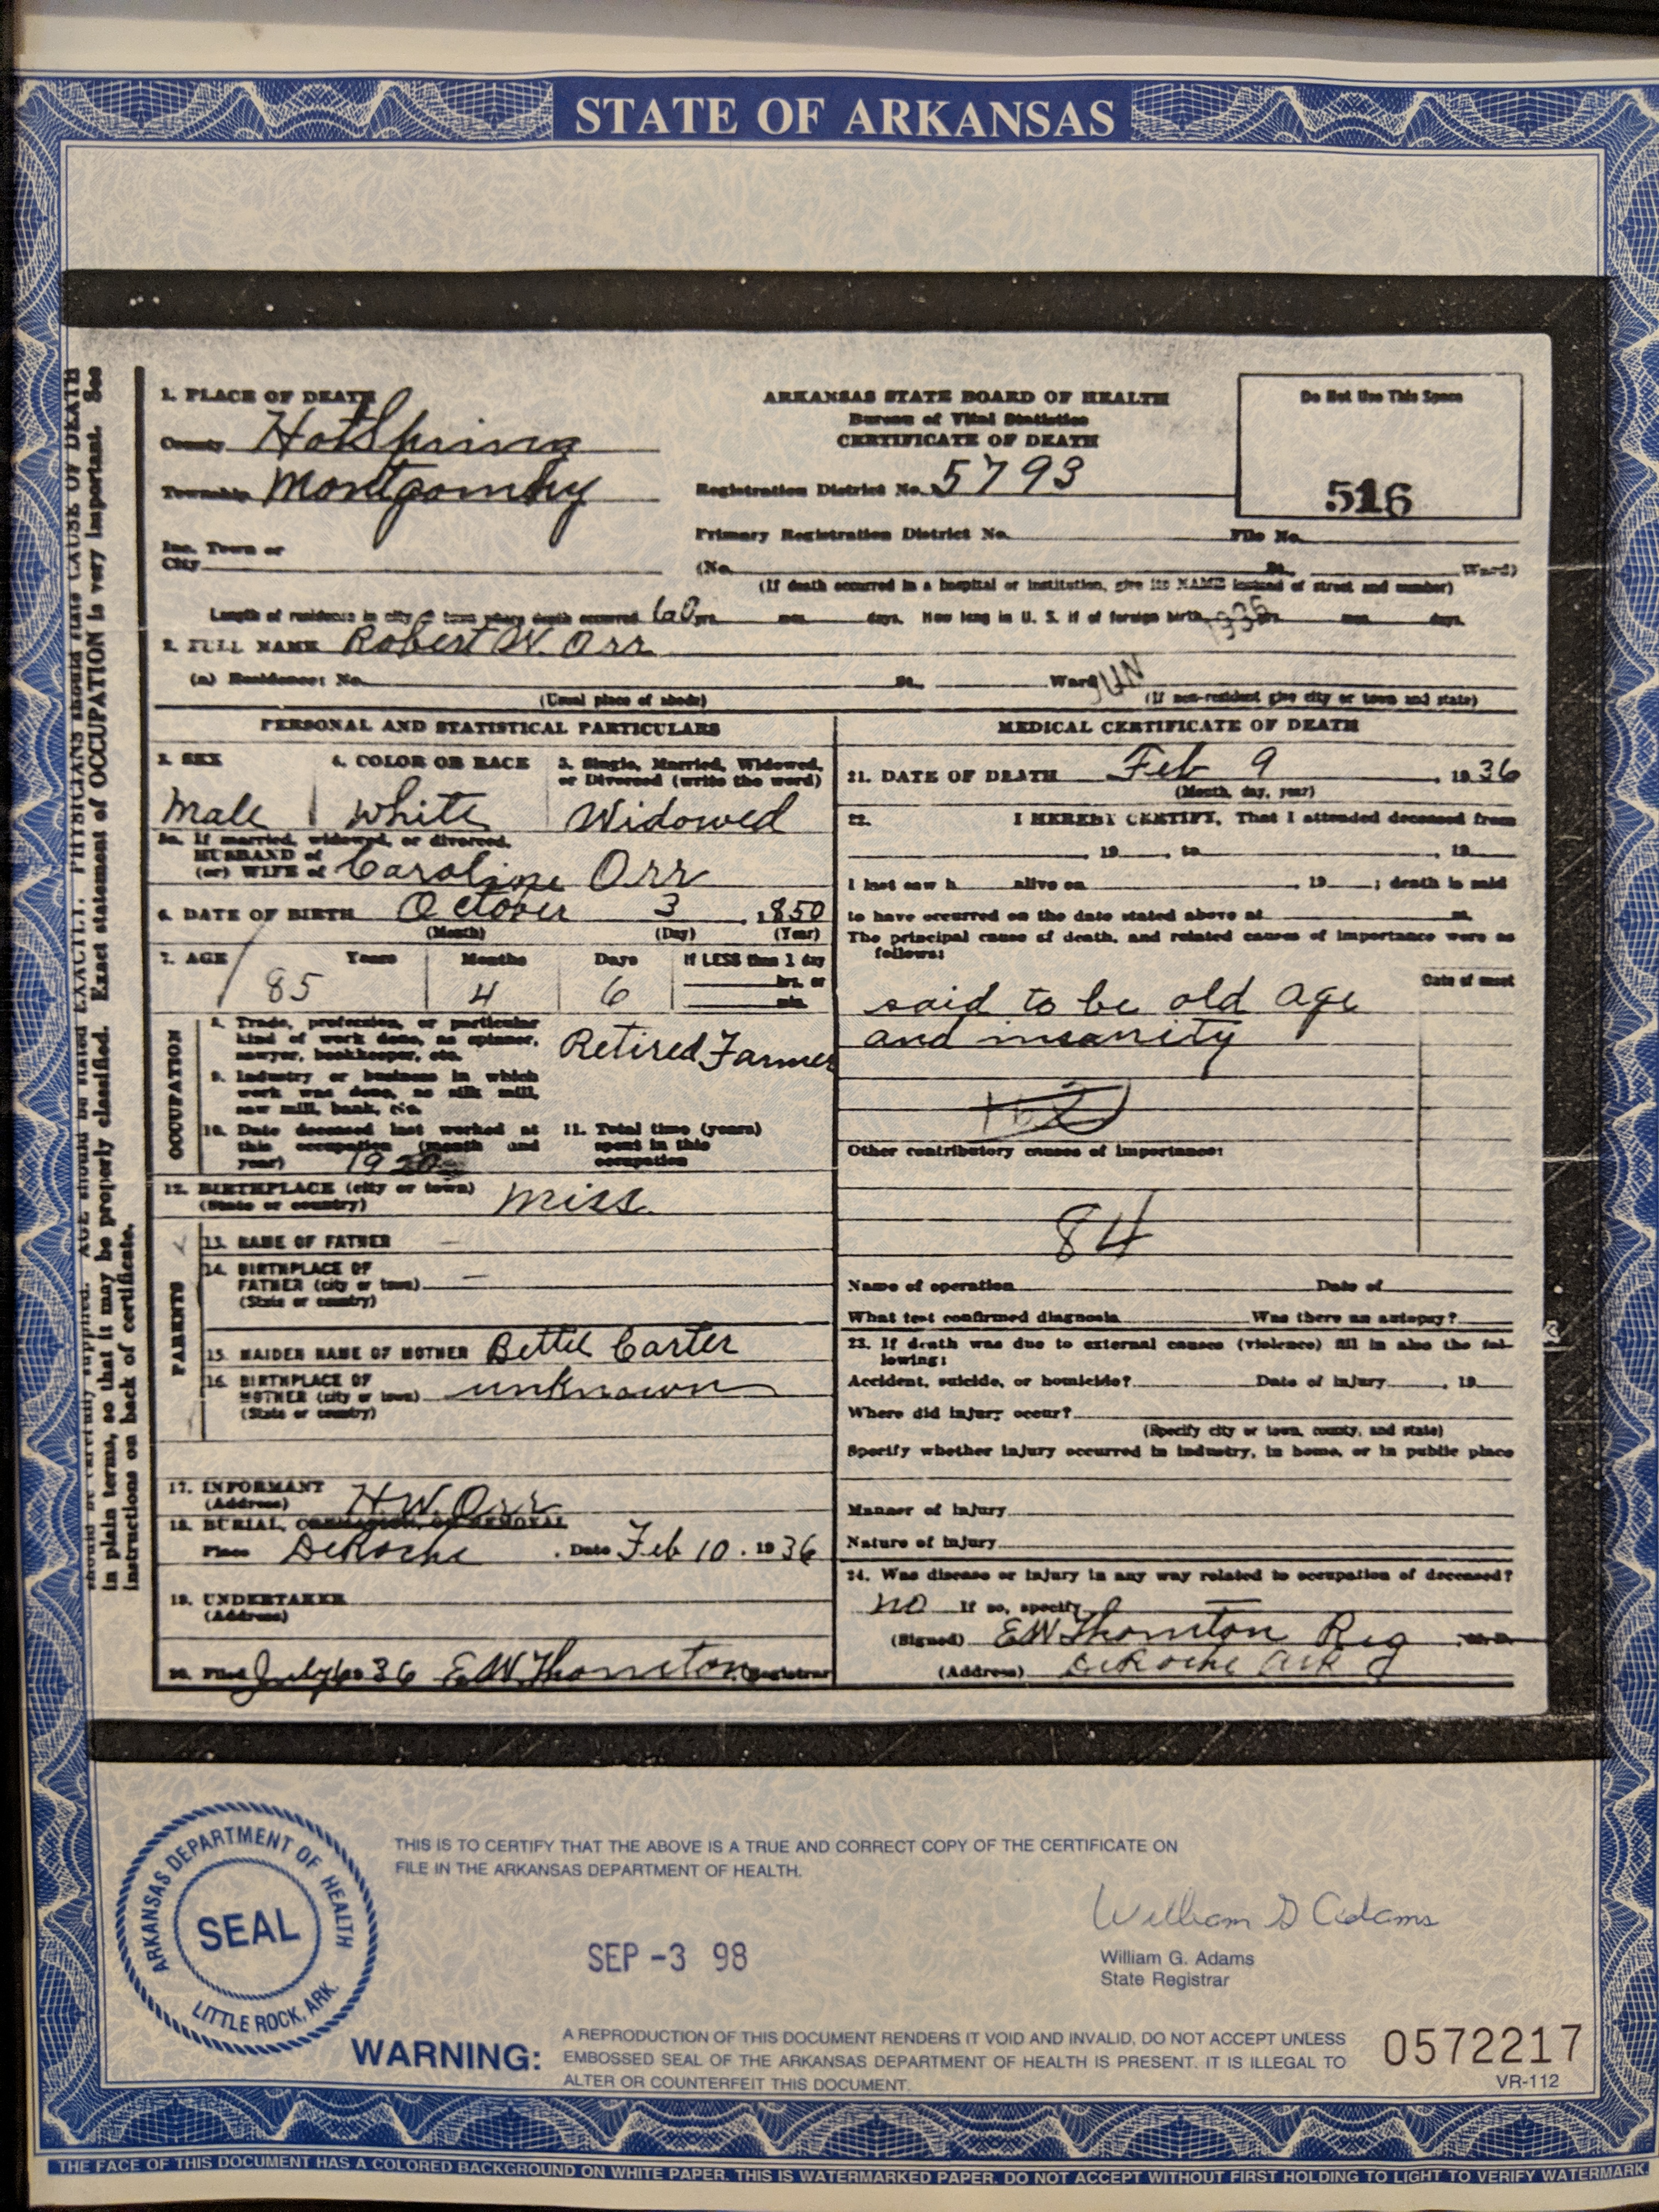 STATE OF ARKANSAS
should be carefully supplied. AGE should be stated EXACTLY. PHYSICIANS should state CAUSE OF DEATH
in plain terms, so that it may be properly classified. Exact statement of OCCUPATION is very important. See
instructions on back of certificate.
1. PLACE OF DEATH
County Hot Spring
Township Montgomery
Inc. Town or
City
ARKANSAS STATE BOARD OF HEALTH
Bureau of Vital Statistics
CERTIFICATE OF DEATH
Registration District No. 5793
Primary Registration District No. File No.
Do Not Use This Space
516
(No. St., Ward)
(If death occurred in a hospital or institution, give its NAME instead of street and number)
Length of residence in city or town where death occurred 60 yrs. mos. days. How long in U. S. if of foreign birth yrs. mos. days.
JUN 1936
2. FULL NAME Robert W. Orr
(a) Residence: No. St., Ward
(Usual place of abode) (If non-resident give city or town and state)
PERSONAL AND STATISTICAL PARTICULARS
3. SEX 4. COLOR OR RACE 5. Single, Married, Widowed,
or Divorced (write the word)
Male White Widowed
5a. If married, widowed, or divorced,
HUSBAND of
(or) WIFE of Caroline Orr
6. DATE OF BIRTH October 3 , 1850
(Month) (Day) (Year)
7. AGE Years Months Days If LESS than 1 day
hrs. or
min.
85 4 6
OCCUPATION
8. Trade, profession, or particular
kind of work done, as spinner,
sawyer, bookkeeper, etc.
Retired Farmer
9. Industry or business in which
work was done, as silk mill,
saw mill, bank, etc.
10. Date deceased last worked at
this occupation (month and
year)
11. Total time (years)
spent in this
occupation
12. BIRTHPLACE (city or town)
(State or country) Miss.
PARENTS
13. NAME OF FATHER —
14. BIRTHPLACE OF
FATHER (city or town) —
(State or country)
15. MAIDEN NAME OF MOTHER Bettie Carter
16. BIRTHPLACE OF
MOTHER (city or town) unknown
(State or country)
17. INFORMANT H.W. Orr
(Address)
18. BURIAL, CREMATION, OR REMOVAL
Place DeRoche . Date Feb 10 . 1936
19. UNDERTAKER
(Address)
20. Filed 36 E.W. Thornton Registrar
MEDICAL CERTIFICATE OF DEATH
21. DATE OF DEATH Feb 9 , 1936
(Month, day, year)
22. I HEREBY CERTIFY, That I attended deceased from
, 19 , to , 19
I last saw h alive on , 19 ; death is said
to have occurred on the date stated above at m.
The principal cause of death, and related causes of importance were as
follows:
Date of onset
said to be old age
and insanity
Other contributory causes of importance:
84
Name of operation Date of
What test confirmed diagnosis Was there an autopsy?
23. If death was due to external causes (violence) fill in also the fol-
lowing:
Accident, suicide, or homicide? Date of injury , 19
Where did injury occur?
(Specify city or town, county, and state)
Specify whether injury occurred in industry, in home, or in public place
Manner of injury
Nature of injury
24. Was disease or injury in any way related to occupation of deceased?
no If so, specify
(Signed) EW Thornton Reg M. D.
(Address) DeRoche Ark
ARKANSAS DEPARTMENT OF HEALTH
SEAL
LITTLE ROCK, ARK.
THIS IS TO CERTIFY THAT THE ABOVE IS A TRUE AND CORRECT COPY OF THE CERTIFICATE ON
FILE IN THE ARKANSAS DEPARTMENT OF HEALTH.
SEP -3 98
William G Adams
William G. Adams
State Registrar
WARNING:
A REPRODUCTION OF THIS DOCUMENT RENDERS IT VOID AND INVALID, DO NOT ACCEPT UNLESS
EMBOSSED SEAL OF THE ARKANSAS DEPARTMENT OF HEALTH IS PRESENT. IT IS ILLEGAL TO
ALTER OR COUNTERFEIT THIS DOCUMENT.
0572217
VR-112
THE FACE OF THIS DOCUMENT HAS A COLORED BACKGROUND ON WHITE PAPER. THIS IS WATERMARKED PAPER. DO NOT ACCEPT WITHOUT FIRST HOLDING TO LIGHT TO VERIFY WATERMARK.